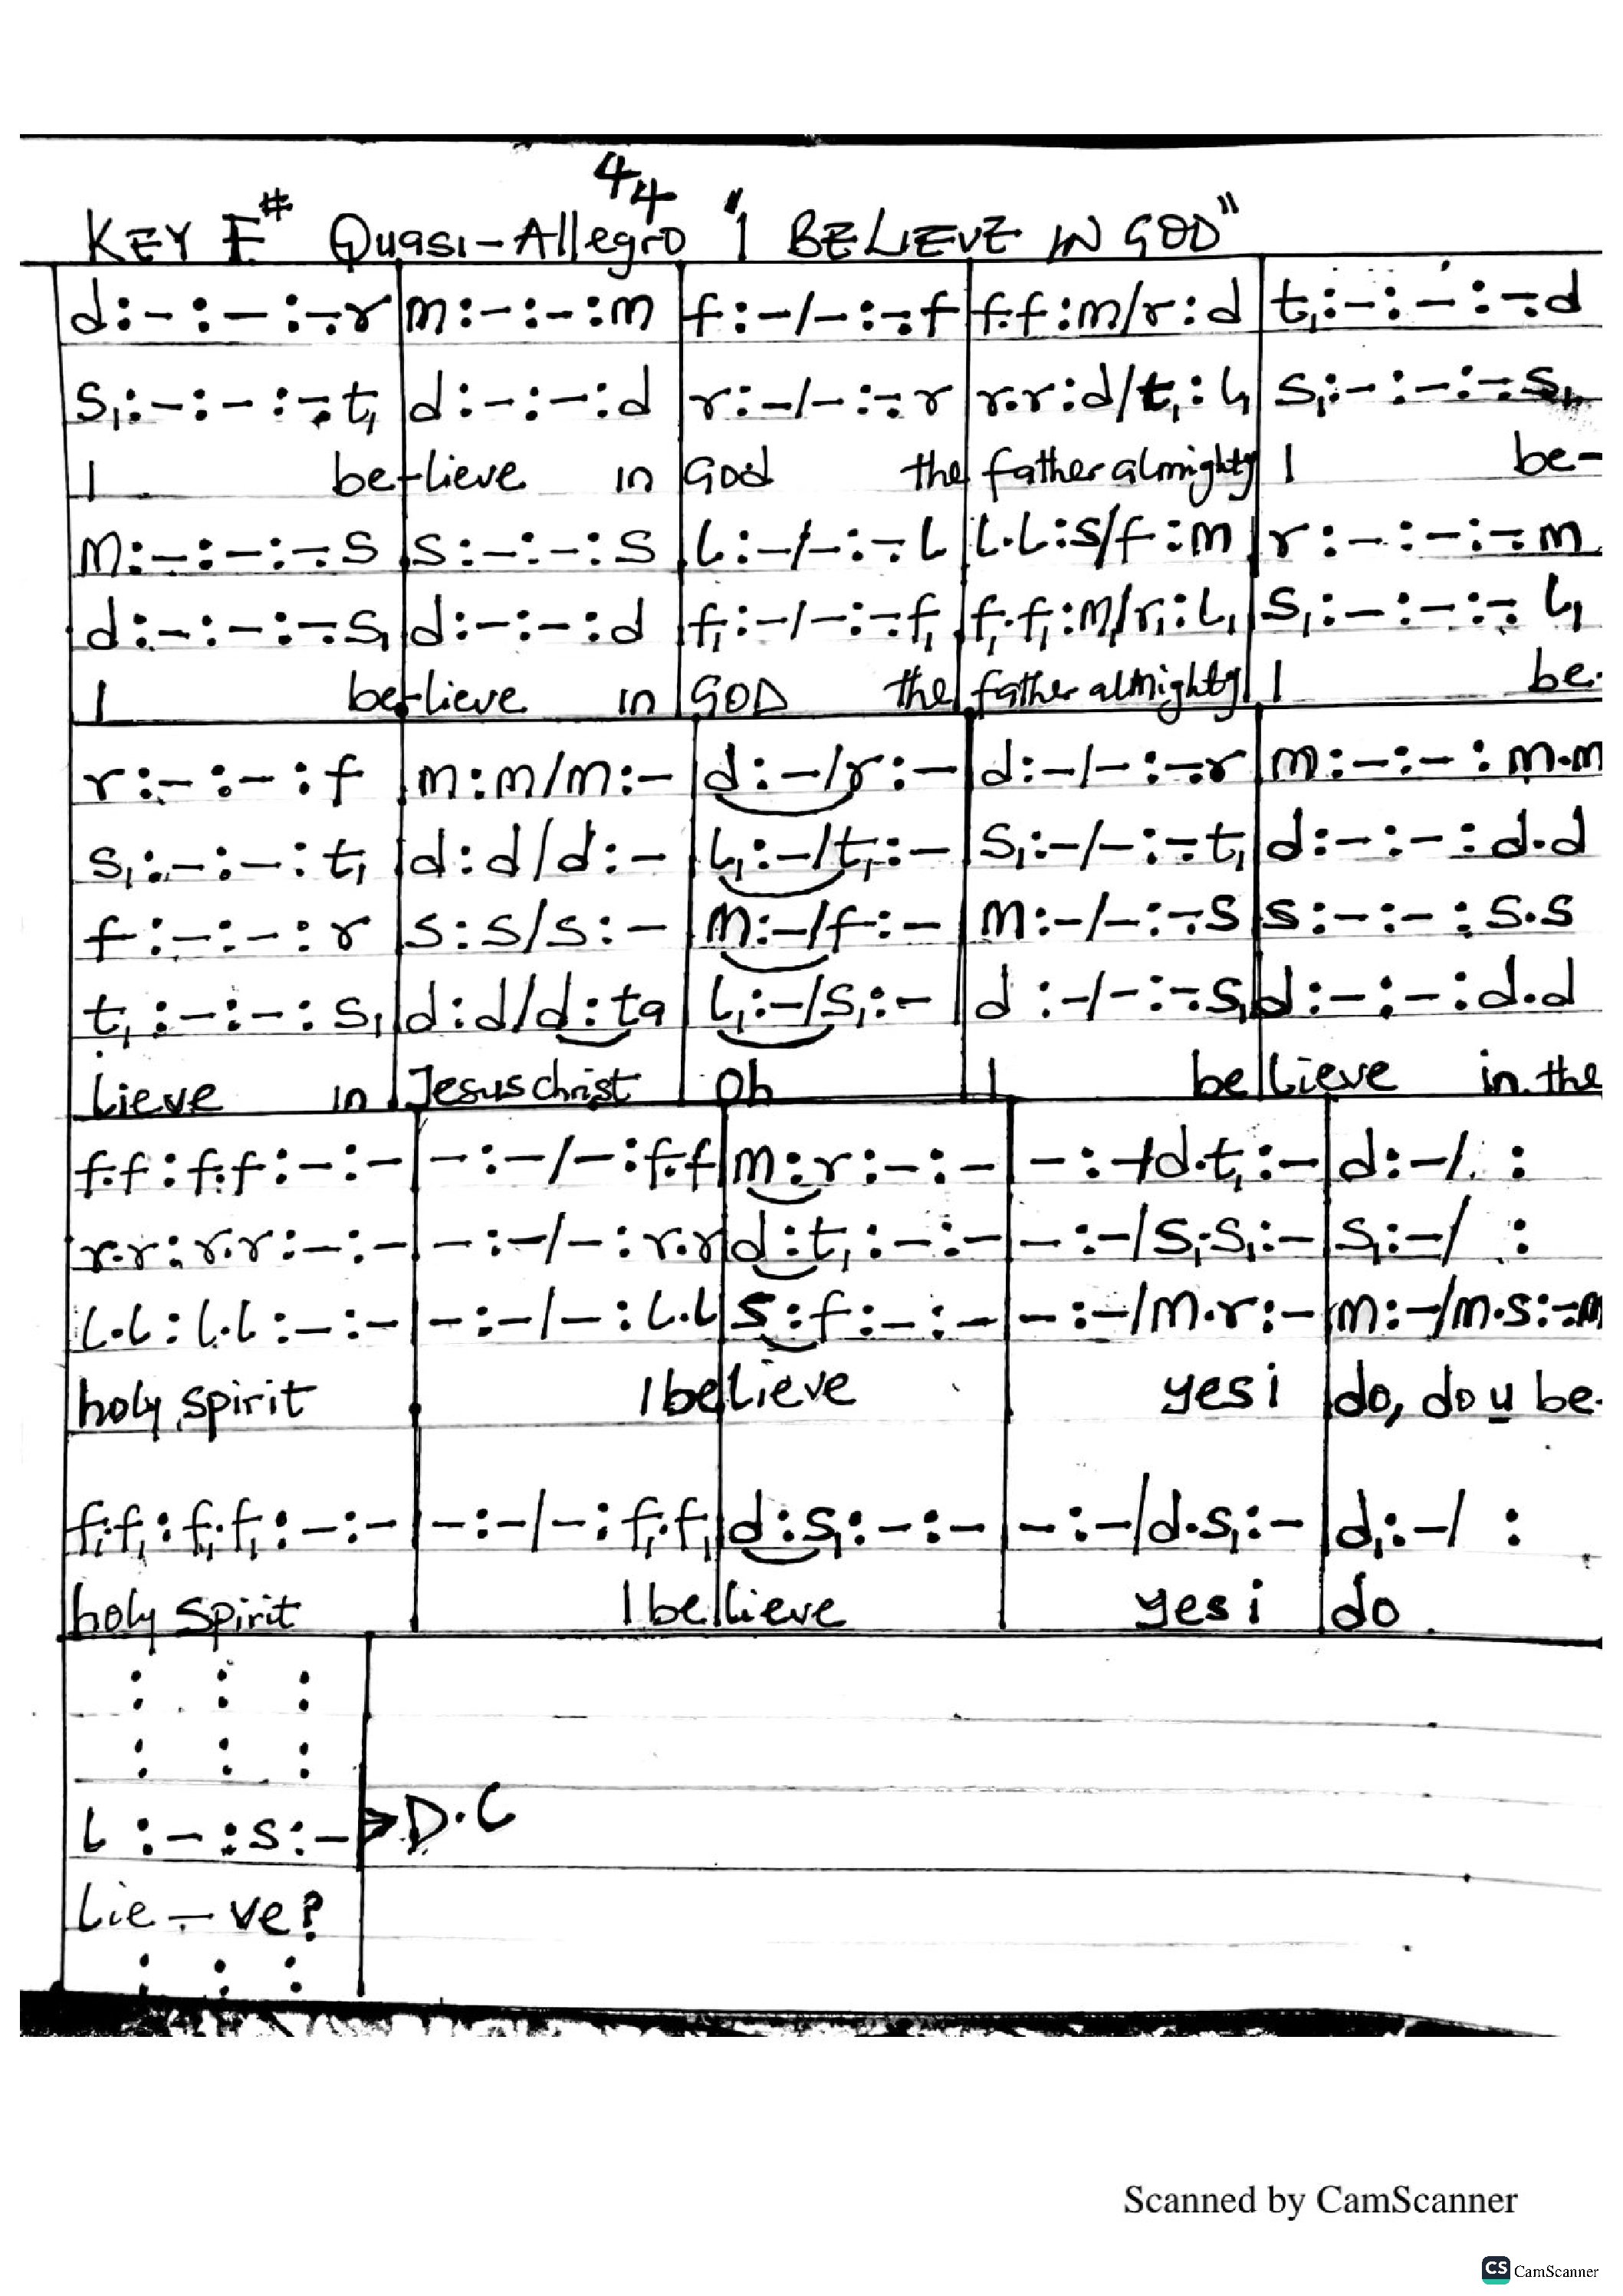 4/4
KEY F# Quasi-Allegro "I BELIEVE IN GOD"
d:-:-:-.r|m:-:-:m|f:-/-:-.f|f.f:m/r:d|t₁:-:-:-.d
s₁:-:-:-.t₁|d:-:-:d|r:-/-:-.r|r.r:d/t₁:l₁|s₁:-:-:-.s₁
I be-lieve in God the father almighty I be-
m:-:-:-.s|s:-:-:s|l:-/-:-.l|l.l:s/f:m|r:-:-:-.m
d:-:-:-.s₁|d:-:-:d|f₁:-/-:-.f₁|f₁.f₁:m₁/r₁:l₁|s₁:-:-:-.l₁
I be-lieve in GOD the father almighty I be-
r:-:-:f|m:m/m:-|d:-/r:-|d:-/-:-.r|m:-:-:m.m
s₁:-:-:t₁|d:d/d:-|l₁:-/t₁:-|s₁:-/-:-.t₁|d:-:-:d.d
f:-:-:r|s:s/s:-|m:-/f:-|m:-/-:-.s|s:-:-:s.s
t₁:-:-:s₁|d:d/d:ta|l₁:-/s₁:-|d:-/-:-.s₁|d:-:-:d.d
lieve in Jesus christ oh I be lieve in the
f.f:f.f:-:-|-:-/-:f.f|m:r:-:-|-:-/d.t₁:-|d:-/ :
r.r:r.r:-:-|-:-/-:r.r|d:t₁:-:-|-:-/s₁.s₁:-|s₁:-/ :
l.l:l.l:-:-|-:-/-:l.l|s:f:-:-|-:-/m.r:-|m:-/m.s:-.m
holy spirit I believe yes i do, do u be-
f₁.f₁:f₁.f₁:-:-|-:-/-:f₁.f₁|d:s₁:-:-|-:-/d.s₁:-|d₁:-/ :
holy spirit I believe yes i do
: : :
: : :
l:-:s:-| D.C
lie-ve?
: : :
Scanned by CamScanner
CS CamScanner